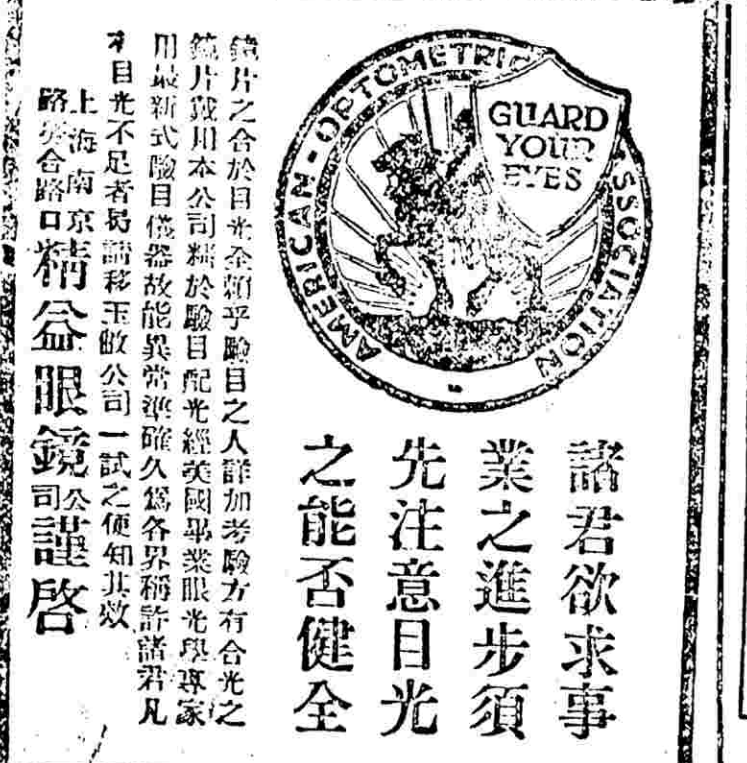 AMERICAN - OPTOMETRIC ASSOCIATION
GUARD
YOUR
EYES
諸君欲求事
業之進步須
先注意目光
之能否健全
鏡片之合於目光全賴乎驗目之人詳加考驗方有合光之
鏡片戴用本公司精於驗目配光經美國畢業眼光學專家
用最新式驗目儀器故能異常準確久爲各界稱許諸君凡
有目光不足者易請移玉敝公司一試之便知其效
上海南京
路英合路口
精益眼鏡公司謹啓